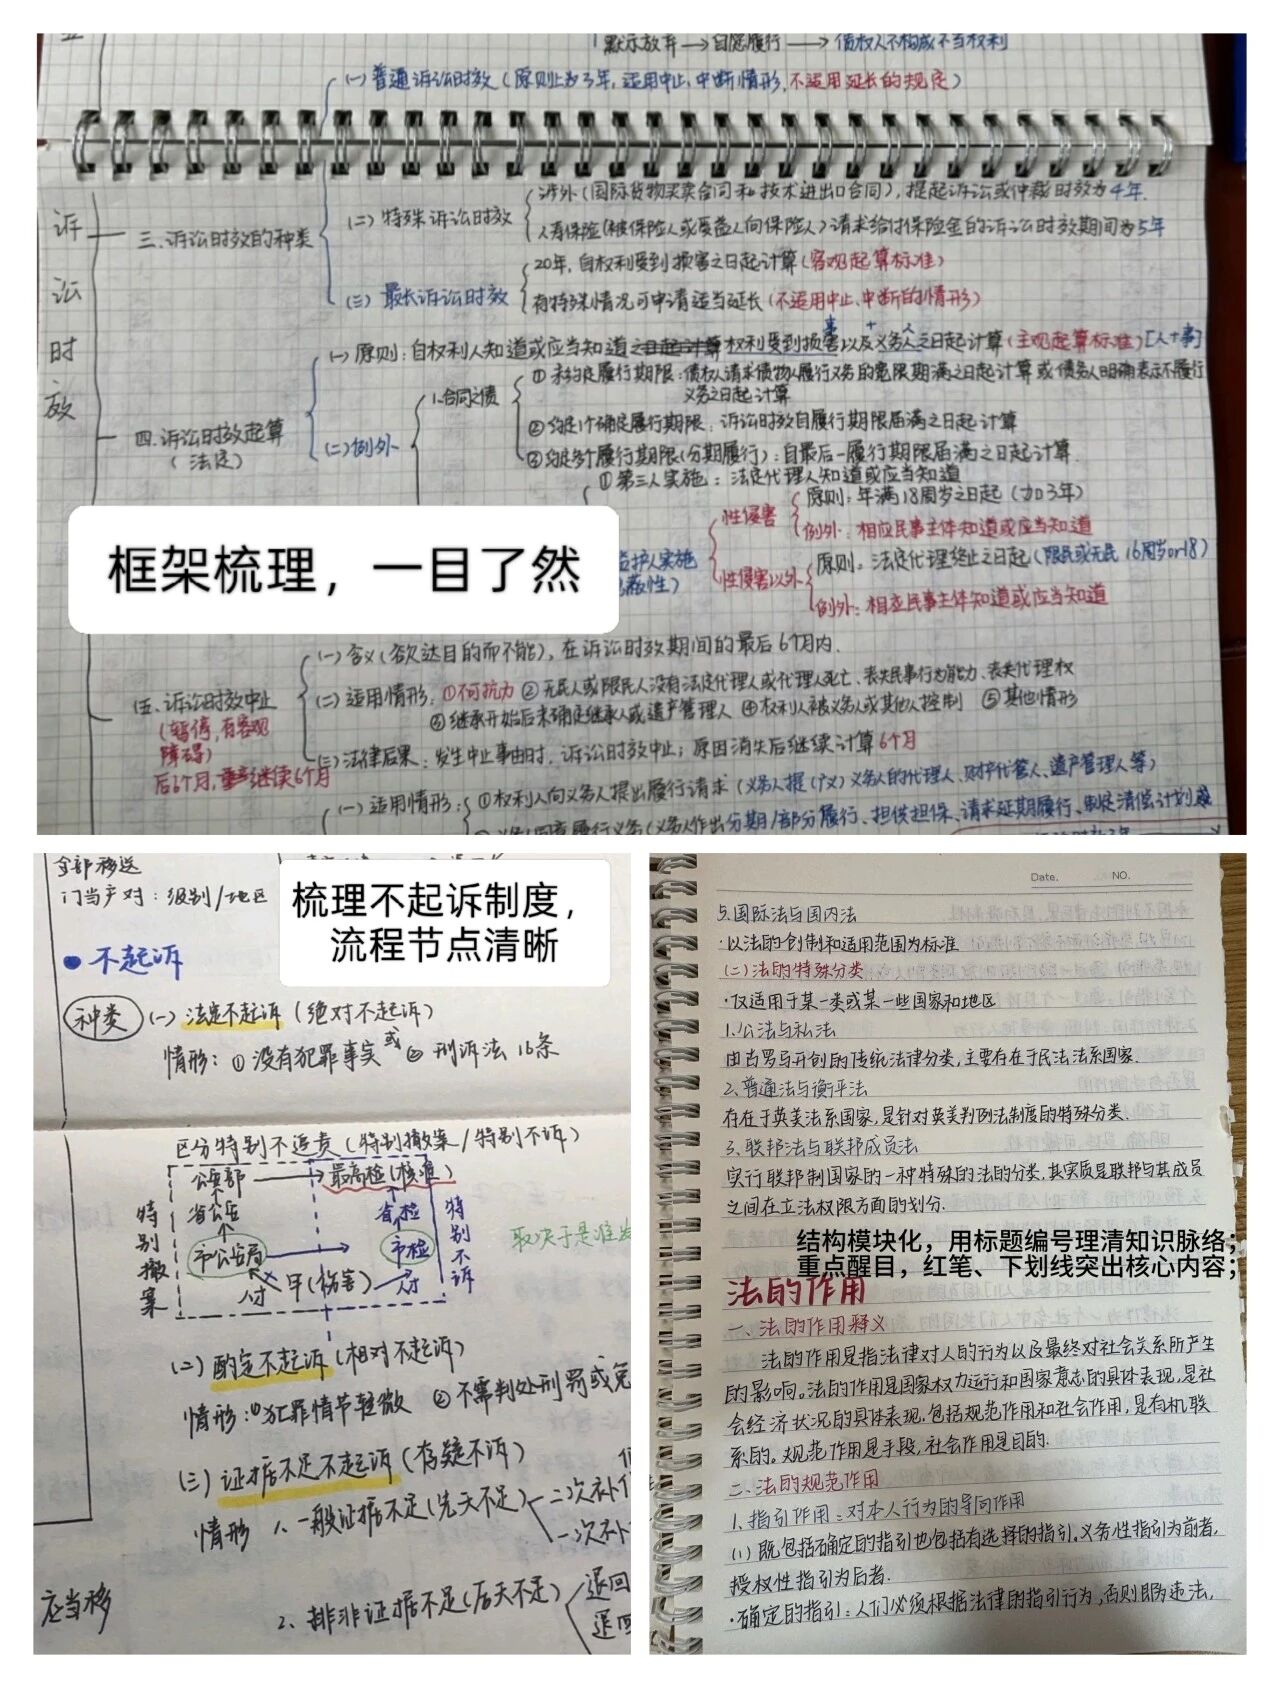 默示放弃→自愿履行→债权人不构成不当得利
(一)普通诉讼时效(原则上为3年,适用中止、中断情形,不适用延长的规定)
诉讼时效
三.诉讼时效的种类
(二)特殊诉讼时效
涉外(国际货物买卖合同和技术进出口合同),提起诉讼或仲裁时效为4年.
人寿保险(被保险人或受益人向保险人)请求给付保险金的诉讼时效期间为5年
(三)最长诉讼时效
20年,自权利受到损害之日起计算(客观起算标准)
有特殊情况可申请适当延长(不适用中止、中断的情形)
四.诉讼时效起算
(法定)
(一)原则:自权利人知道或应当知道之日起计算权利受到损害以及义务人之日起计算(主观起算标准)[人+事]
事 + 人
(二)例外
1.合同之债
①未约定履行期限:债权人请求债务人履行义务的宽限期满之日起计算或债务人明确表示不履行
义务之日起计算
②约定1个确定履行期限:诉讼时效自履行期限届满之日起计算
③约定多个履行期限(分期履行):自最后一履行期限届满之日起计算.
①第三人实施:法定代理人知道或应当知道
监护人实施
性侵害
原则:年满18周岁之日起(加3年)
例外:相应民事主体知道或应当知道
性侵害以外
原则:法定代理终止之日起(限民或无民 16周岁or18)
例外:相应民事主体知道或应当知道
框架梳理，一目了然
五.诉讼时效中止
(暂停,有客观
障碍)
后6个月,继续6个月
(一)含义(欲达目的而不能),在诉讼时效期间的最后6个月内.
(二)适用情形:①不可抗力 ②无民人或限民人没有法定代理人或代理人死亡、丧失民事行为能力、丧失代理权
③继承开始后未确定继承人或遗产管理人 ④权利人被义务人或其他人控制 ⑤其他情形
(三)法律后果:发生中止事由时,诉讼时效中止;原因消失后继续计算6个月
(一)适用情形:①权利人向义务人提出履行请求(义务人提(广义)义务人的代理人、财产代管人、遗产管理人等)
②义务人同意履行义务(义务人作出分期/部分履行、担供担保、请求延期履行、制定清偿计划或
全部移送
门当户对:级别/地区
梳理不起诉制度，
流程节点清晰
●不起诉
种类
(一)法定不起诉(绝对不起诉)
情形:①没有犯罪事实 或 ②刑诉法16条
区分特别不追责(特别撤案/特别不诉)
公安部→最高检(核准)
省公安 省检
市公安局→市检
甲(伤害)
特别撤案
特别不诉
取决于是谁
(二)酌定不起诉(相对不起诉)
情形:①犯罪情节轻微 ②不需判处刑罚或免
(三)证据不足不起诉(存疑不诉)
情形 1.一般证据不足(先天不足)
二次补
一次补
2.排非证据不足(后天不足)
退回
退回
应当移
Date. NO.
5.国际法与国内法
·以法的创制和适用范围为标准
(二)法的特殊分类
·仅适用于某一类或某一些国家和地区
1.公法与私法
由古罗马开创的传统法律分类,主要存在于民法法系国家.
2.普通法与衡平法
存在于英美法系国家,是针对英美判例法制度的特殊分类.
3.联邦法与联邦成员法
实行联邦制国家的一种特殊的法的分类,其实质是联邦与其成员
之间在立法权限方面的划分.
结构模块化，用标题编号理清知识脉络；
重点醒目，红笔、下划线突出核心内容；
法的作用
一、法的作用释义
法的作用是指法律对人的行为以及最终对社会关系所产生
的影响。法的作用是国家权力运行和国家意志的具体表现,是社
会经济状况的具体表现.包括规范作用和社会作用,是有机联
系的。规范作用是手段,社会作用是目的.
二、法的规范作用
1.指引作用:对本人行为的导向作用
(1)既包括确定的指引也包括有选择的指引,义务性指引为前者,
授权性指引为后者.
·确定的指引:人们必须根据法律的指引行为,否则即为违法,